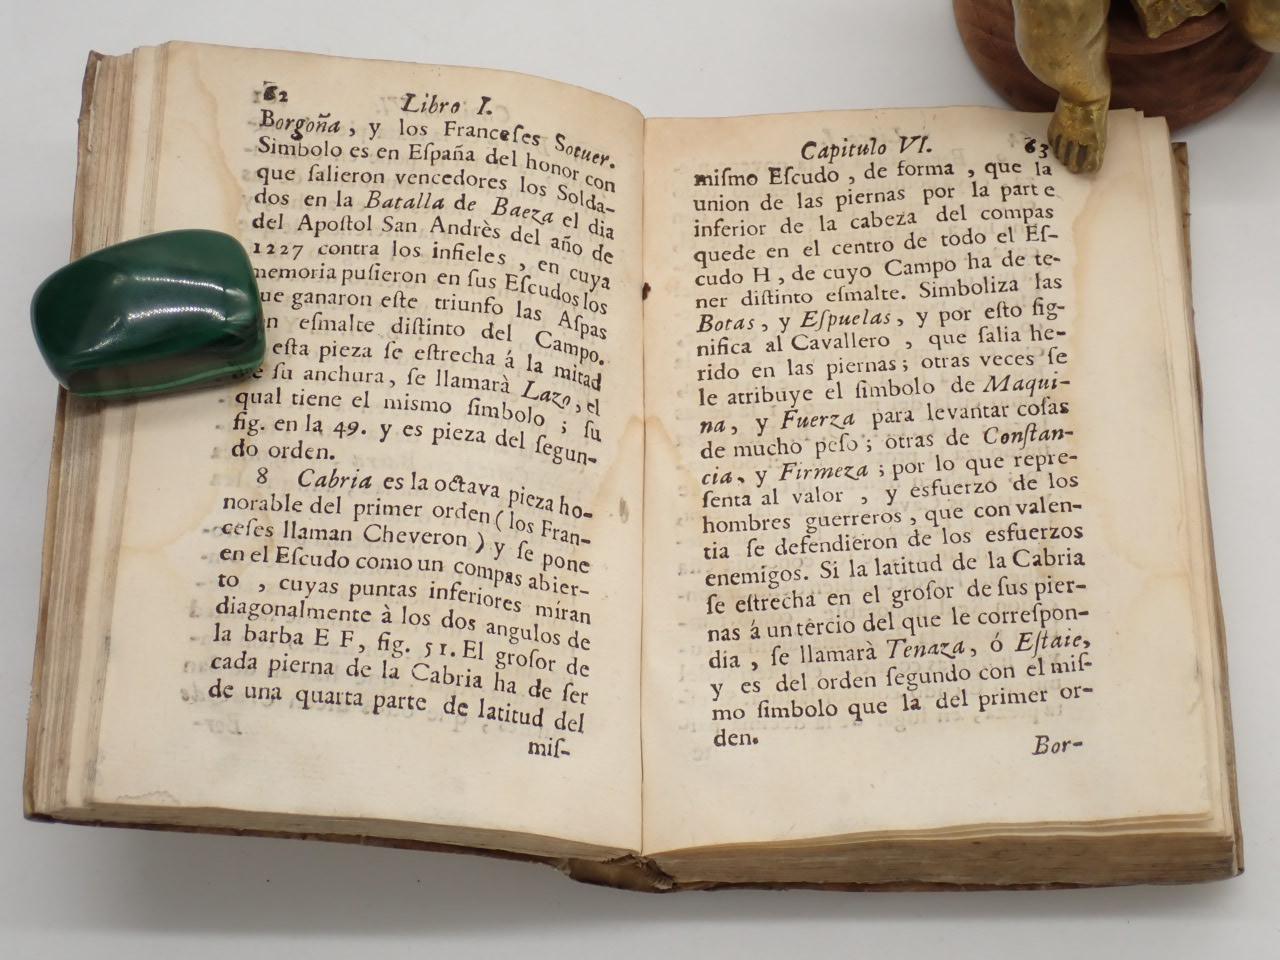 62 Libro I.
Borgoña, y los Franceſes Sotuer.
Simbolo es en Eſpaña del honor con
que ſalieron vencedores los Solda-
dos en la Batalla de Baeza el dia
del Apoſtol San Andrès del año de
1227 contra los infieles, en cuya
memoria puſieron en ſus Eſcudos los
ue ganaron eſte triunfo las Aſpas
n eſmalte diſtinto del Campo.
eſta pieza ſe eſtrecha á la mitad
ſu anchura, ſe llamarà Lazo, el
qual tiene el miſmo ſimbolo; ſu
fig. en la 49. y es pieza del ſegun-
do orden.
8 Cabria es la octava pieza ho-
norable del primer orden (los Fran-
ceſes llaman Cheveron) y ſe pone
en el Eſcudo como un compas abier-
to, cuyas puntas inferiores miran
diagonalmente à los dos angulos de
la barba E F, fig. 51. El groſor de
cada pierna de la Cabria ha de ſer
de una quarta parte de latitud del
miſ-
Capitulo VI. 63
miſmo Eſcudo, de forma, que la
union de las piernas por la parte
inferior de la cabeza del compas
quede en el centro de todo el Eſ-
cudo H, de cuyo Campo ha de te-
ner diſtinto eſmalte. Simboliza las
Botas, y Eſpuelas, y por eſto ſig-
nifica al Cavallero, que ſalia he-
rido en las piernas; otras veces ſe
le atribuye el ſimbolo de Maqui-
na, y Fuerza para levantar coſas
de mucho peſo; otras de Conſtan-
cia, y Firmeza; por lo que repre-
ſenta al valor, y esfuerzo de los
hombres guerreros, que con valen-
tia ſe defendieron de los esfuerzos
enemigos. Si la latitud de la Cabria
ſe eſtrecha en el groſor de ſus pier-
nas á un tercio del que le correſpon-
dia, ſe llamarà Tenaza, ó Eſtaie,
y es del orden ſegundo con el miſ-
mo ſimbolo que la del primer or-
den.
Bor-